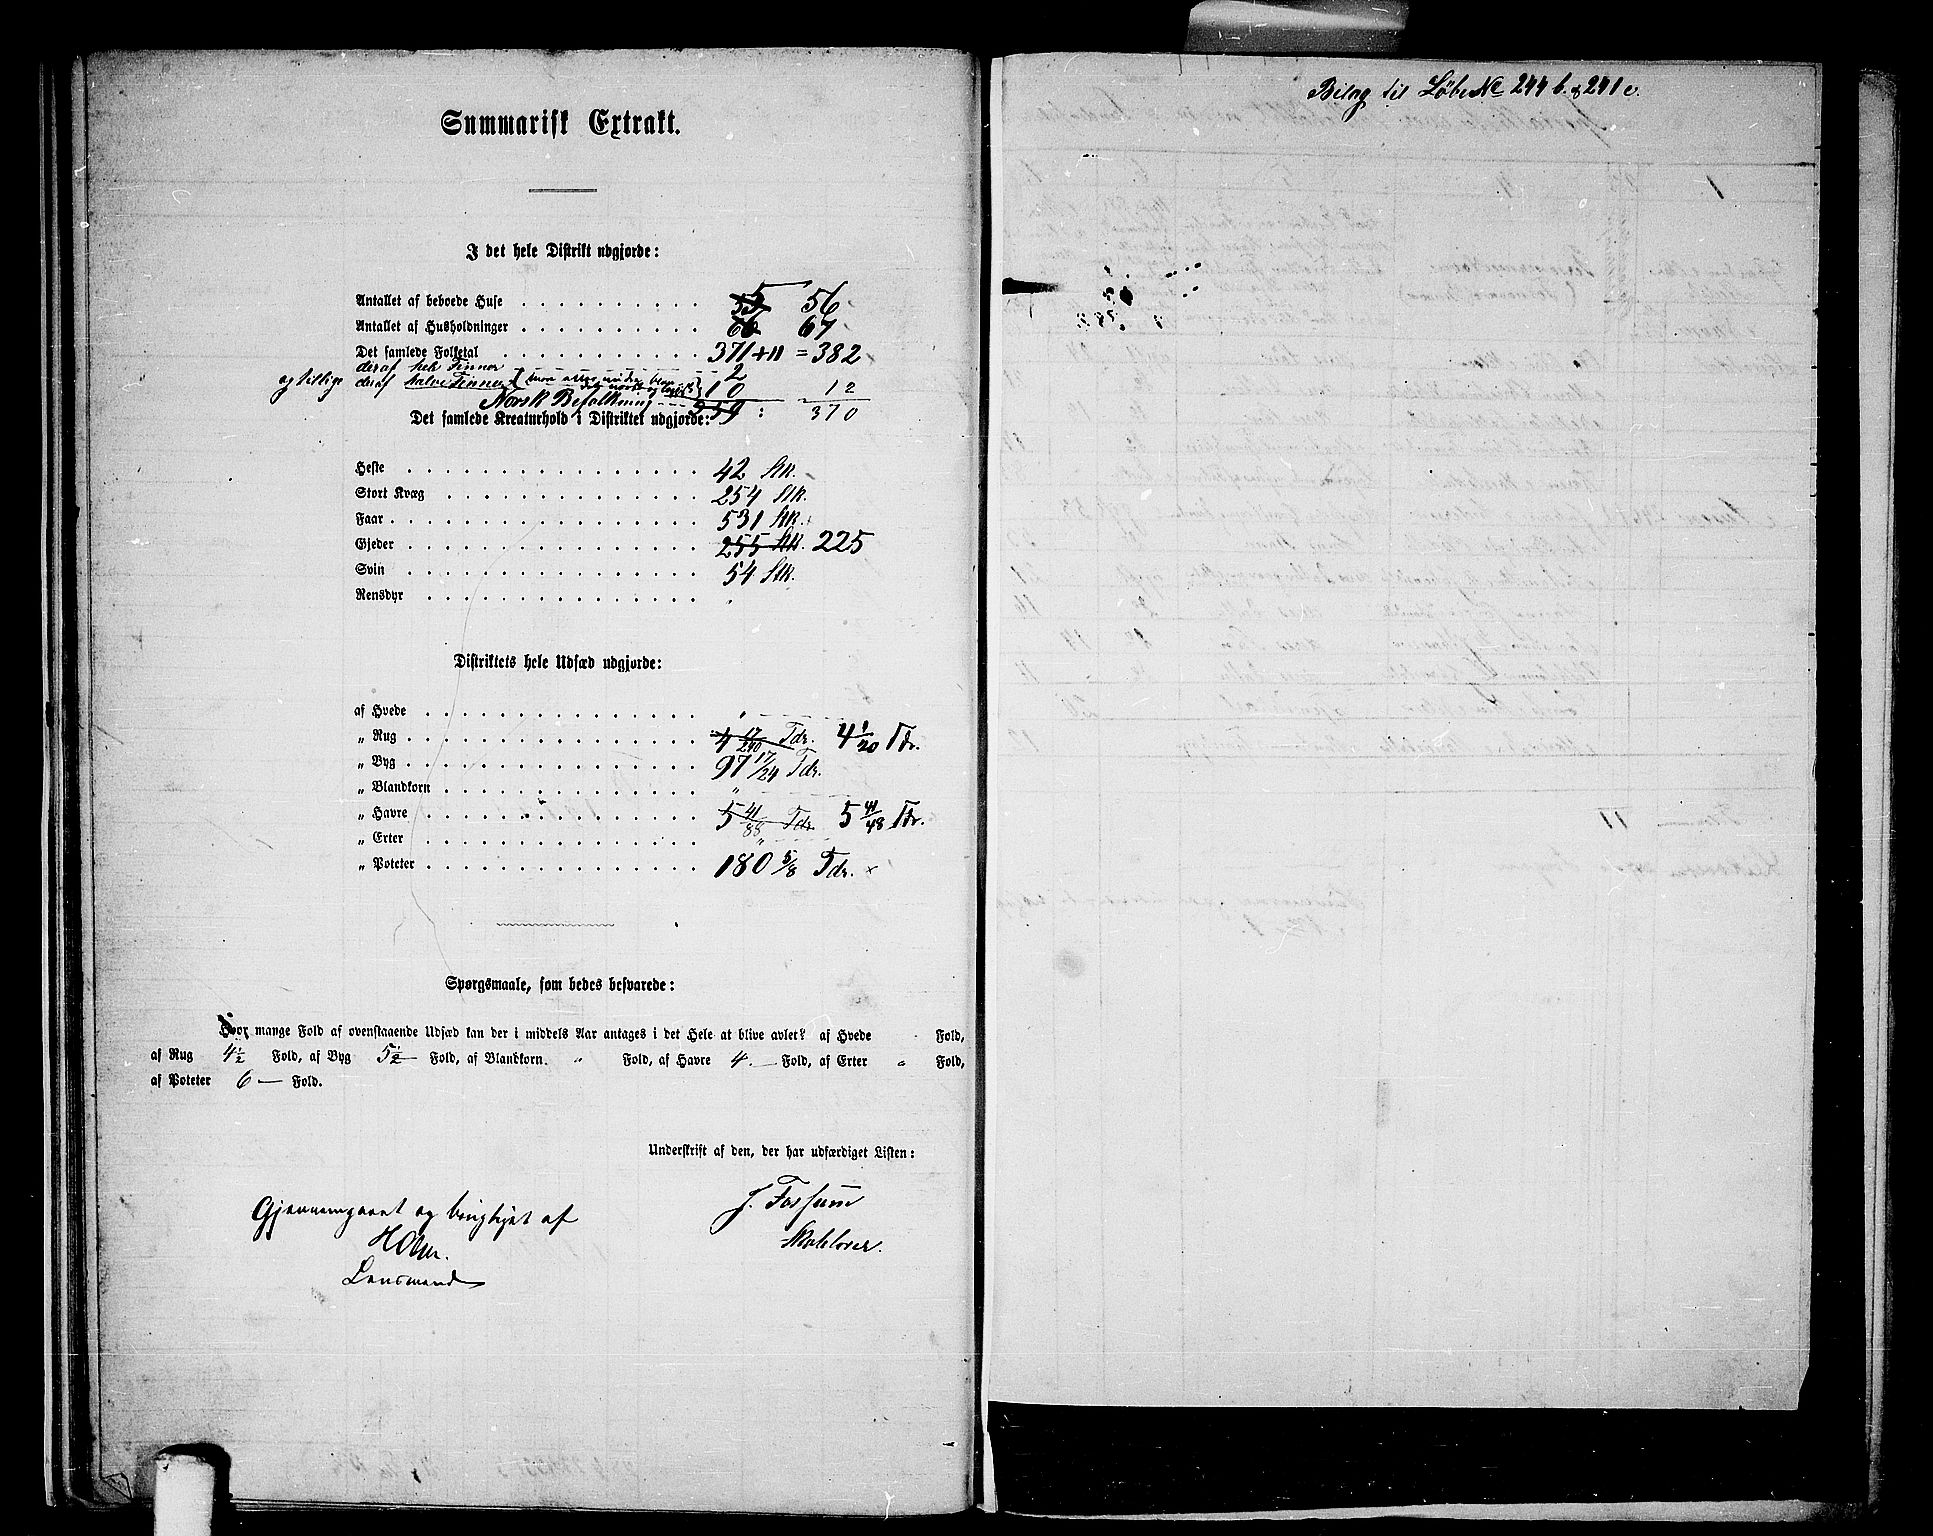 Summarisk Extrakt.
I det hele Distrikt udgjorde:
Antallet af beboede Huse . . . . . . . . . . 55 56
Antallet af Husholdninger . . . . . . . . . . 66 67
Det samlede Folketal . . . . . . . . . . . 371 + 11 = 382
deraf hele Finner 2
og tillige deraf halve Finner 10 12
Norsk Befolkning 359 : 370
Det samlede Kreaturhold i Distriktet udgjorde:
Heste . . . . . . . . . . . . . . . . 42 Stk.
Stort Kvæg . . . . . . . . . . . . . . 254 Stk.
Faar . . . . . . . . . . . . . . . . . 531 Stk.
Gjeder . . . . . . . . . . . . . . . . 255 Stk. 225
Svin . . . . . . . . . . . . . . . . 54 Stk.
Rensdyr . . . . . . . . . . . . . . . "
Distriktets hele Udsæd udgjorde:
af Hvede . . . . . . . . . . . . . . . "
„ Rug . . . . . . . . . . . . . . . . 4 17/240 Tdr. 4 1/20 Tdr.
„ Byg . . . . . . . . . . . . . . . . 97 17/24 Tdr.
„ Blandkorn . . . . . . . . . . . . . . "
„ Havre . . . . . . . . . . . . . . . 5 41/88 Tdr. 5 41/48 Tdr.
„ Erter . . . . . . . . . . . . . . . "
„ Poteter . . . . . . . . . . . . . . . 180 5/8 Tdr. ×
Spørgsmaale, som bedes besvarede:
Hvor mange Fold af ovenstaaende Udsæd kan der i middels Aar antages i det Hele at blive avlet? af Hvede " Fold,
af Rug 4 1/2 Fold, af Byg 5 1/2 Fold, af Blandkorn. " Fold, af Havre 4. — Fold, af Erter " Fold,
af Poteter 6 — Fold.
Underskrift af den, der har udfærdiget Listen:
J. Fossum
Skolelærer.
Gjennemgaaet og berigtiget af
Lensmand
Bilag til Løbe No 244 b. & 241 c.